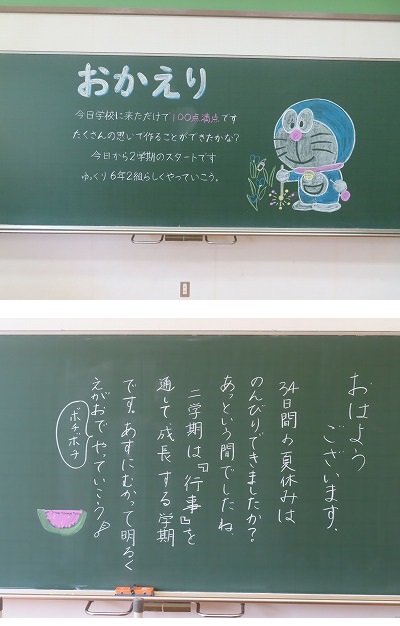 おかえり
今日学校に来ただけで100点満点です
たくさんの思いで作ることができたかな?
今日から2学期のスタートです
ゆっくり6年2組らしくやっていこう。
おはよう
ございます。
34日間の夏休みは
のんびりできましたか?
あっという間でしたね。
二学期は『行事』を
通して成長する学期
です。あすにむかって明るく
えがおでやっていこう♪
ボチボチ